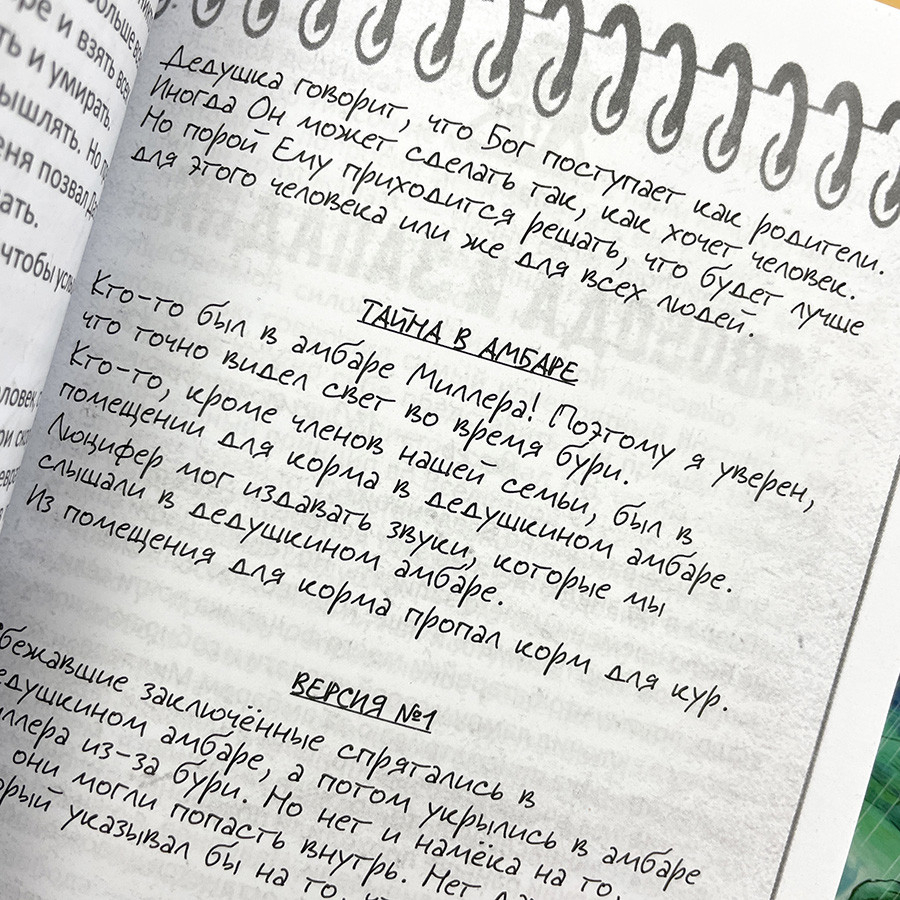 больше
ре и взять
ть и умирать.
ышлять. Но
еня позвал
ать.
чтобы
Дедушка говорит, что Бог поступает как родители.
Иногда Он может сделать так, как хочет человек.
Но порой Ему приходится решать, что будет лучше
для этого человека или же для всех людей.
ТАЙНА В АМБАРЕ
Кто-то был в амбаре Миллера! Поэтому я уверен,
что точно видел свет во время бури.
Кто-то, кроме членов нашей семьи, был в
помещении для корма в дедушкином амбаре.
Люцифер мог издавать звуки, которые мы
слышали в дедушкином амбаре.
Из помещения для корма пропал корм для кур.
ВЕРСИЯ №1
бежавшие заключённые спрятались в
едушкином амбаре, а потом укрылись в амбаре
ллера из-за бури. Но нет и намёка на то,
они могли попасть внутрь. Нет
орый указывал бы на то,